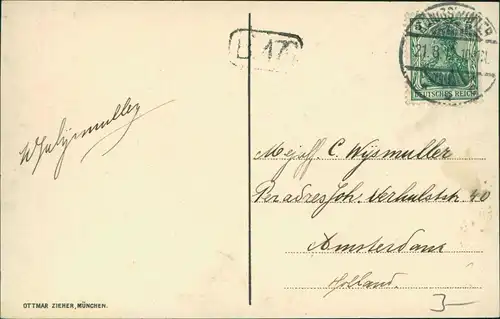 KÖNIGSWINTER
21. 8.
DEUTSCHES REICH
B. 17
Mejoff. C. Wijsmuller
Per adres Joh. Verhulststr. 40
Amsterdam
Holland.
3-
OTTMAR ZIEHER, MÜNCHEN.